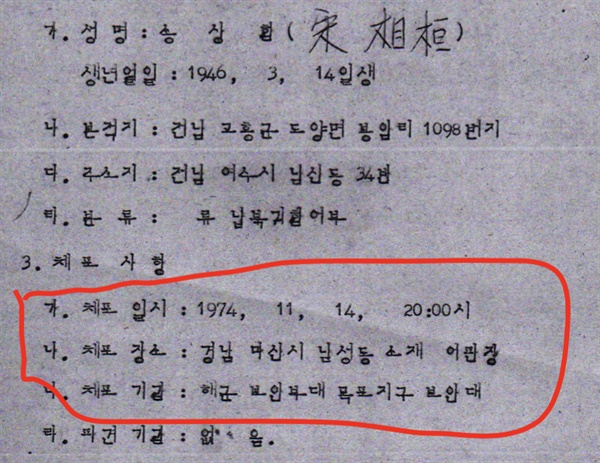 가. 성 명 : 송 상 환 ( 宋 相 桓 )
생년월일 : 1946, 3, 14일생
나. 본적지 : 전남 고흥군 도양면 봉암리 1098번지
다. 주소지 : 전남 여수시 남산동 34반
라. 분 류 : 류 납북귀환어부
3. 체포 사항
가. 체포 일시 : 1974, 11, 14, 20:00시
나. 체포 장소 : 경남 마산시 남성동 소재 어판장
다. 체포 기관 : 해군 보안부대 목포지구 보안대
라. 파견 기관 : 없 음.